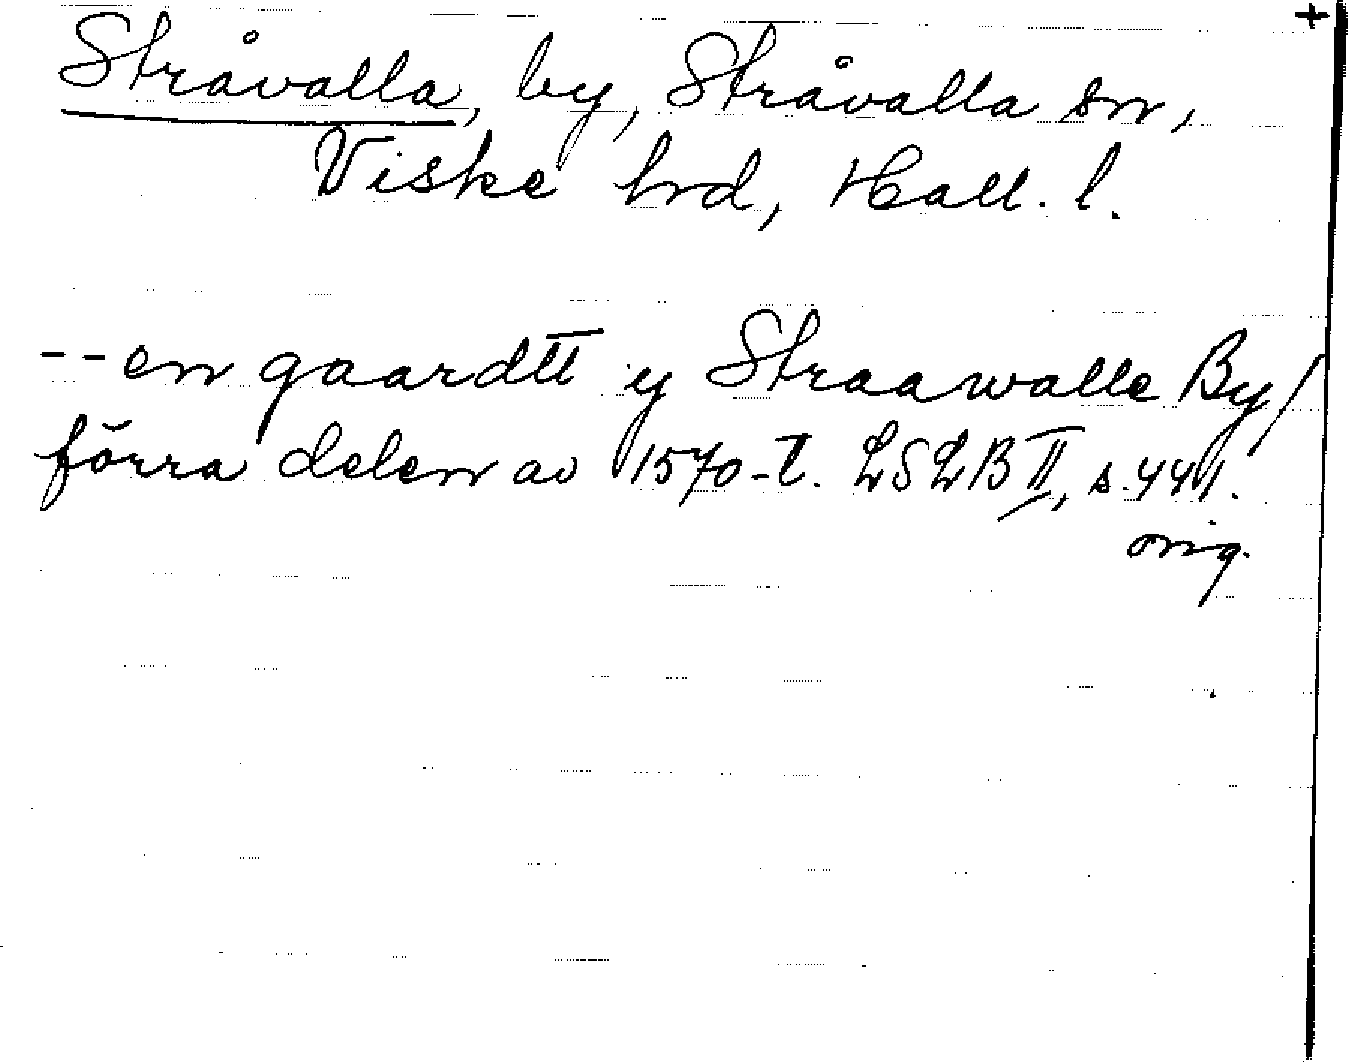 +
Stråvalla, by, Stråvalla sn,
Viske hrd, Hall. l.
-- en gaardtt y Straawalle By/
förra delen av 1570-t. LSLB II, s. 441.
orig.